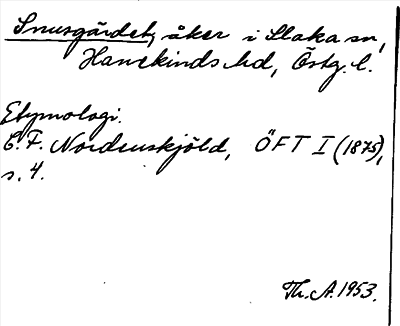 Snusgärdet, åker i Slaka sn,
Hanekinds hd, Östg. l.
Etymologi.
C. F. Nordenskjöld, ÖFT I (1875),
s. 4.
Th. A. 1953.